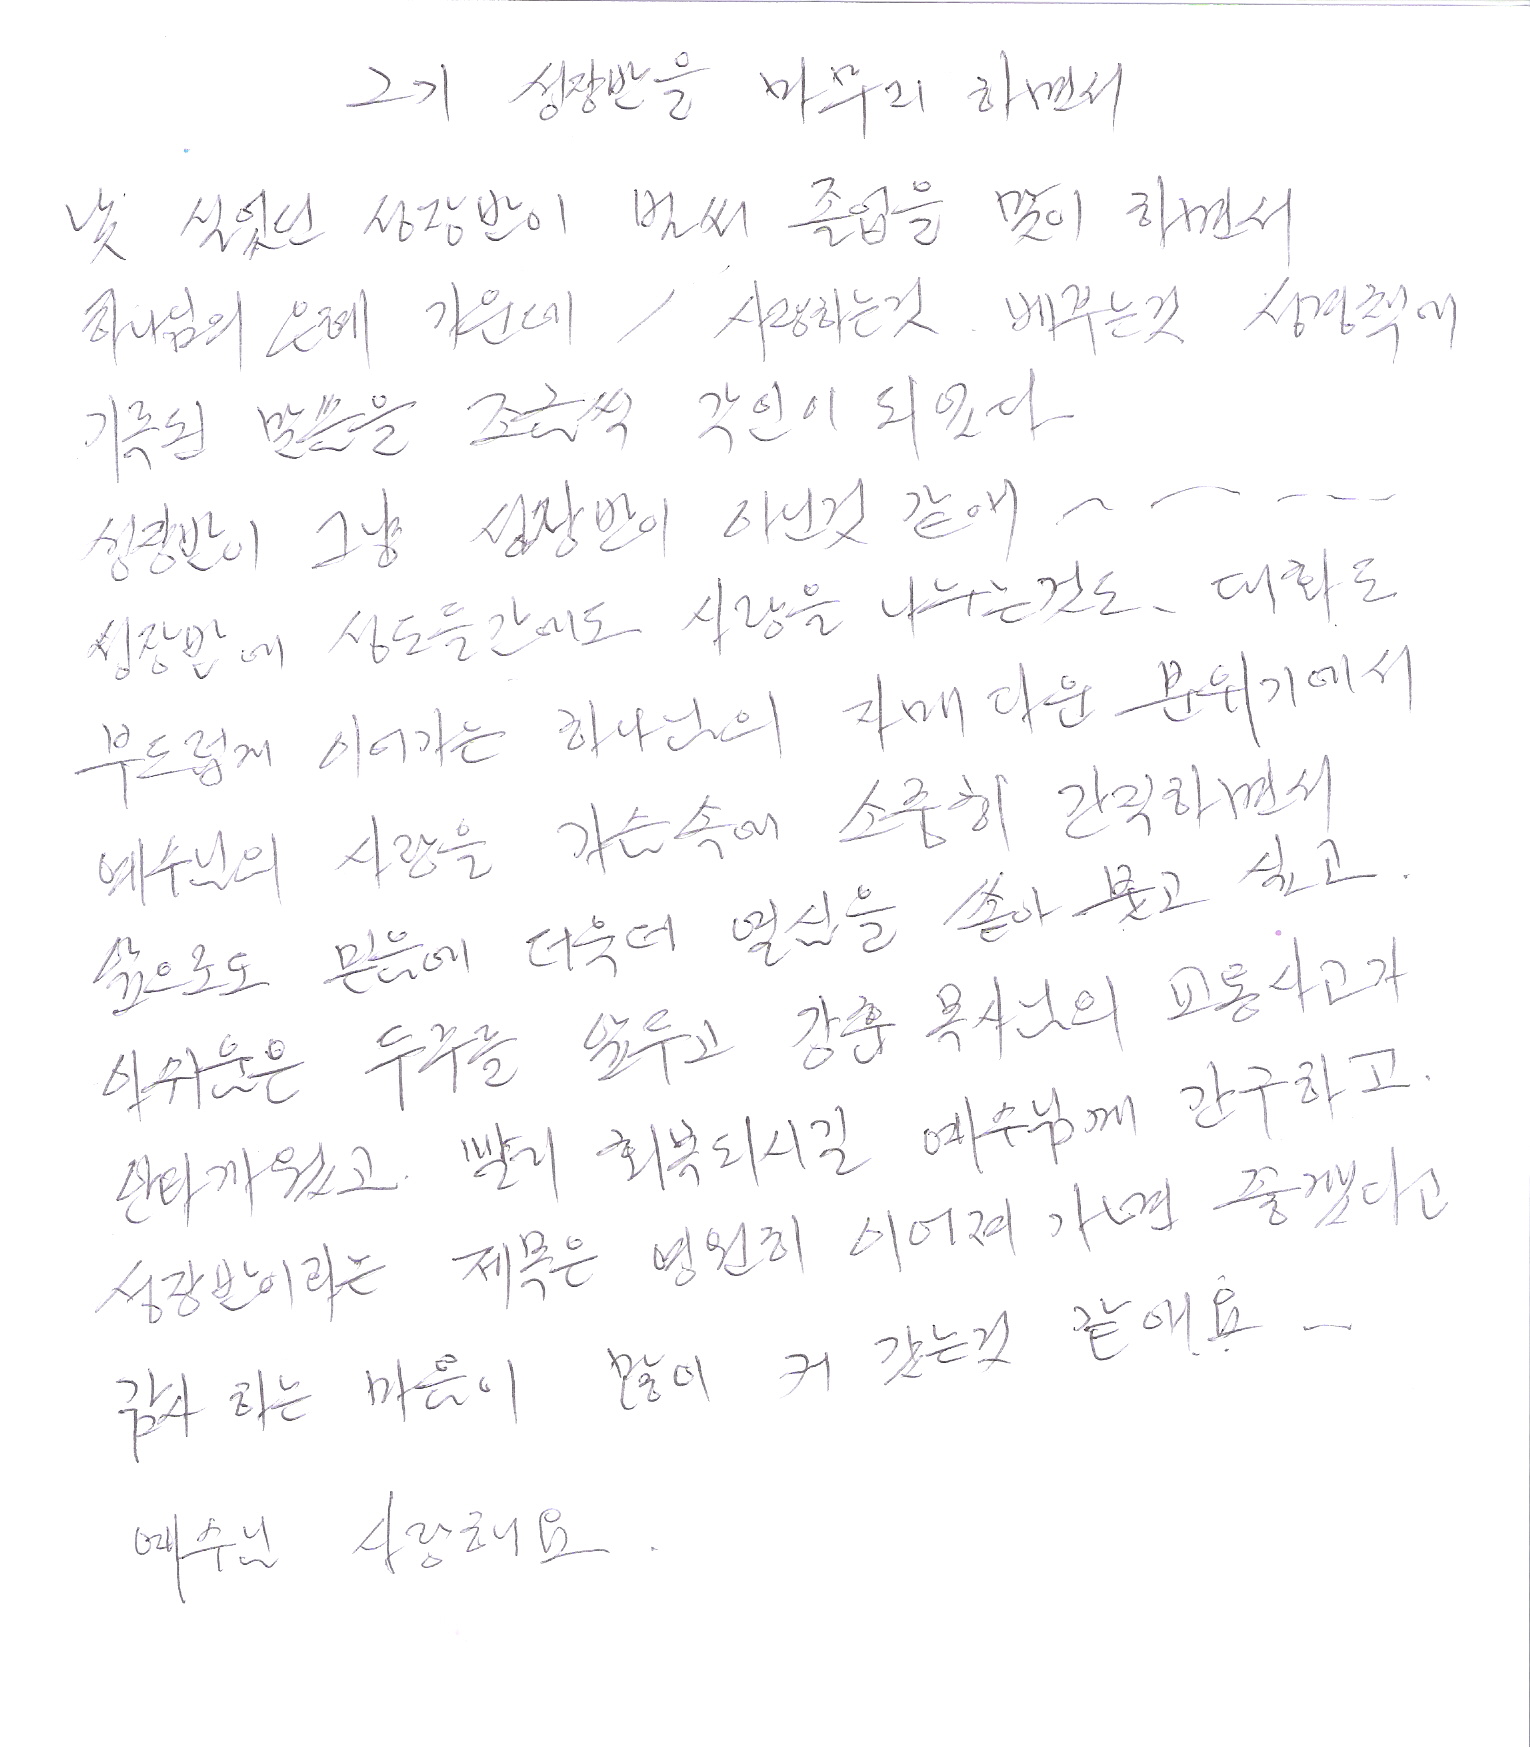 그기 성장반을 마무리 하면서
낯 실었던 성장반이 벌써 졸업을 맞이 하면서
하나님의 은혜 가운데 / 사랑하는것. 베푸는것 성경책에
기록된 말씀을 조금씩 각인이 되었다
성장반이 그냥 성장반이 아닌것 같애 ~ ~ ~ ~
성장반에 성도들간에도 사랑을 나누는것도、 대화도
부드럽게 이어가는 하나님의 자매다운 분위기에서
예수님의 사랑을 가슴속에 소중히 간직하면서
앞으로도 믿음에 더욱더 열심을 쏟아 붓고 싶고.
아쉬움은 두주를 앞두고 강훈 목사님의 교통사고가
안타까웠고. 빨리 회복되시길 예수님께 간구하고.
성장반이라는 제목은 영원히 이어져 가면 좋겠다고
감사 하는 마음이 많이 커 갔는것 같애요 ~
예수님 사랑해요.